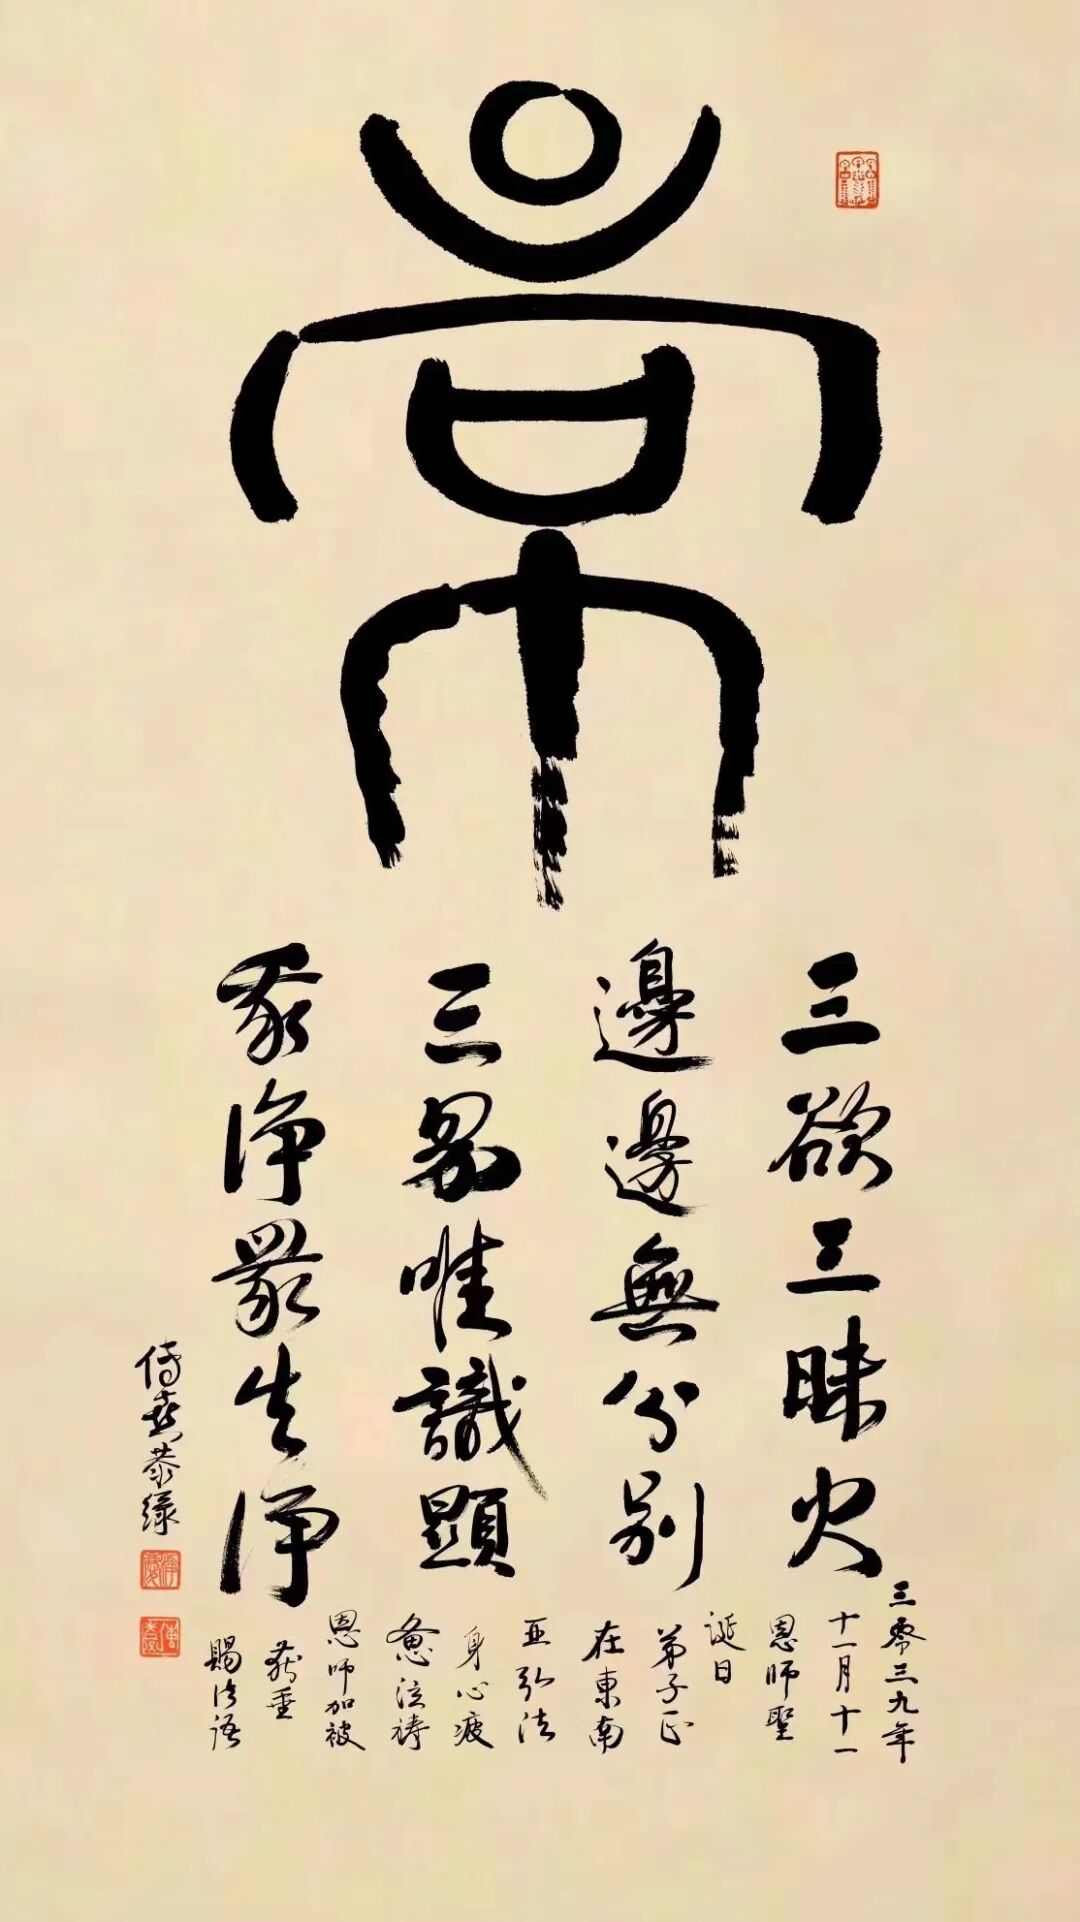 常
三欲三昧火
邊邊無分別
三界唯識顯
我淨眾生淨
三零三九年
十一月十一
恩師聖
誕日
弟子正
在東南
亞弘法
身心疲
憊泣禱
恩師加被
蒙垂
賜法語
傅熹恭錄